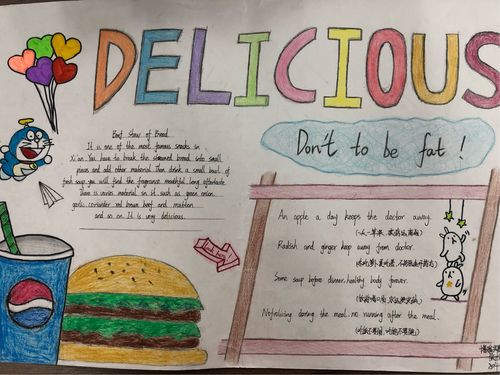 DELICIOUS
Beef Stew of Bread
It is one of the most famous snacks in
Xi'an. You have to break the steamed bread into small
pieces and add other material. Then drink a small bowl of
fresh soup, you will find the fragrance mouthful, long aftertaste.
There is varies material in it such as green onion
garlic coriander red brown beef and mutton
and so on. It is very delicious.
Don't to be fat!
An apple a day keeps the doctor away.
(一天一苹果，疾病远离我)
Radish and ginger keep away from doctor.
Some soup before dinner, healthy body forever.
No froliving during the meal. no running after the meal.